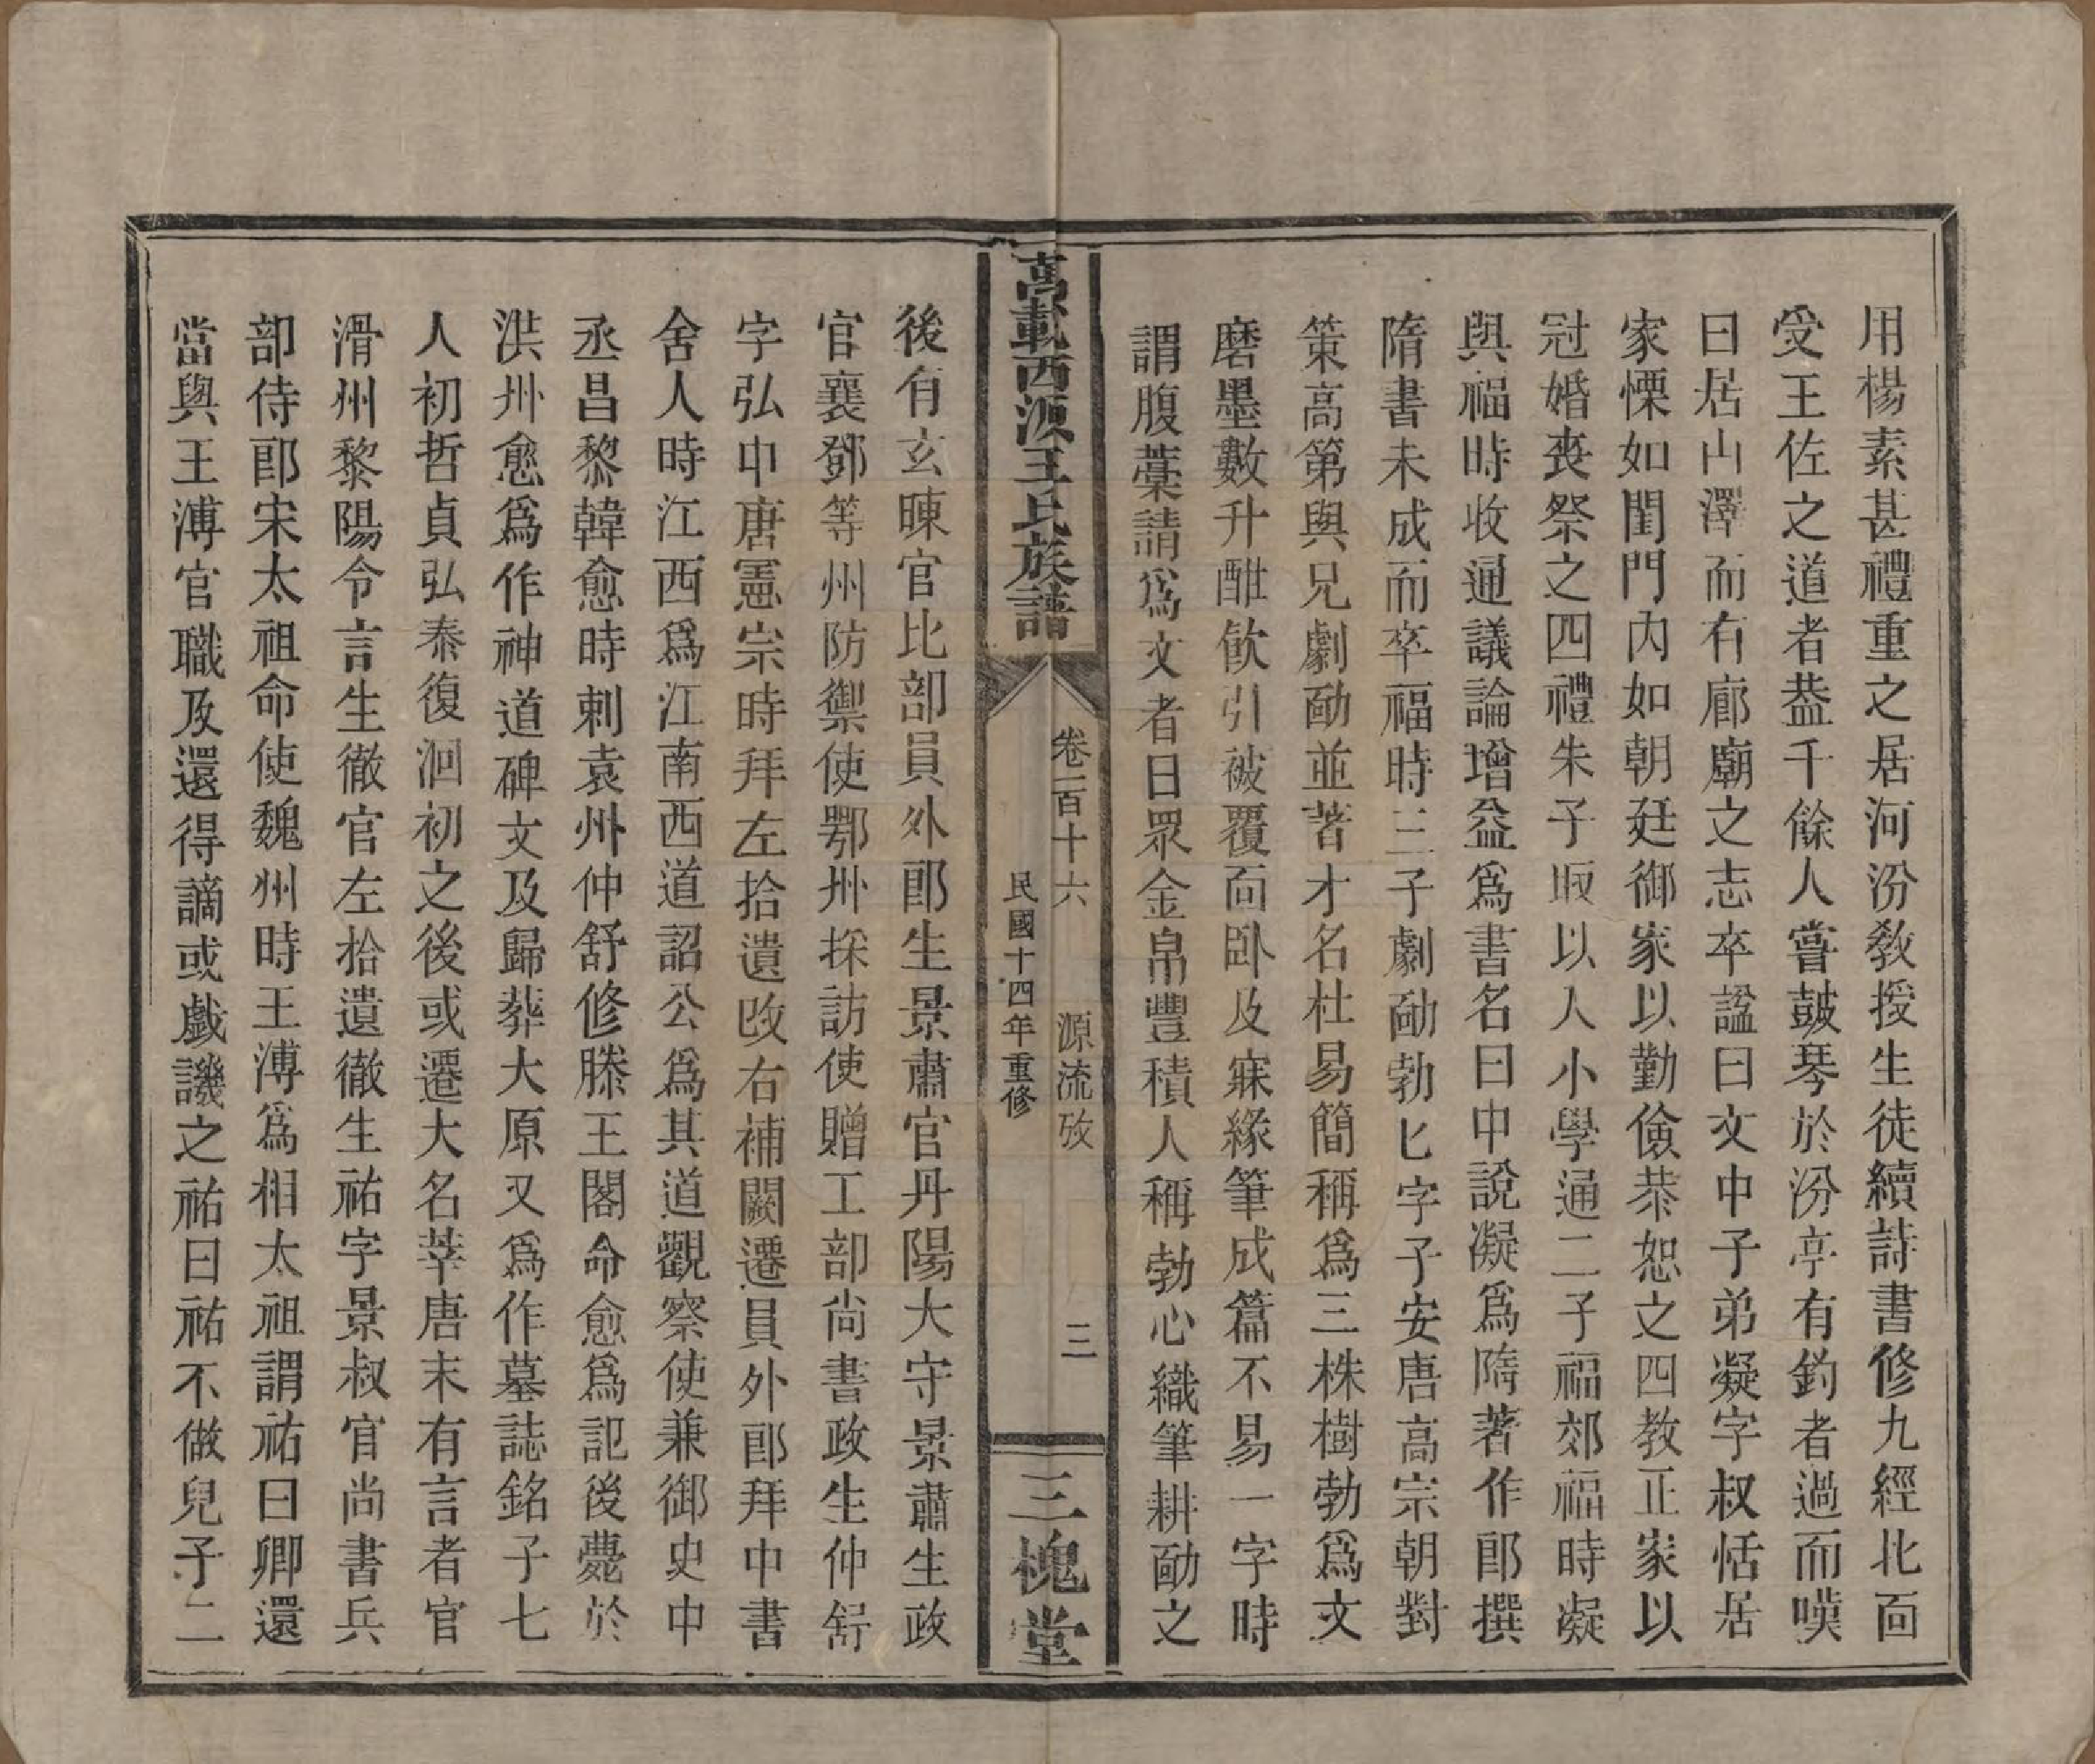 用楊素甚禮重之居河汾教授生徒續詩書修九經北面
受王佐之道者葢千餘人嘗鼓琴於汾亭有釣者過而嘆
曰居山澤而有廊廟之志卒諡曰文中子弟凝字叔恬居
家慄如閨門內如朝廷御家以勤儉恭恕之四教正家以
冠婚喪祭之四禮朱子取以入小學通二子福郊福時凝
與福時收通議論增益爲書名曰中說凝爲隋著作郎撰
隋書未成而卒福時三子劇勔勃勃字子安唐高宗朝對
策高第與兄劇勔並著才名杜易簡稱爲三株樹勃爲文
磨墨數升酣飲引被覆面卧及寐緣筆成篇不易一字時
謂腹藁請爲文者日眾金帛豐積人稱勃心織筆耕勔之
萬載西源王氏族譜
卷一百十六 源流攷 三
民國十四年重修
三槐堂
後有玄暕官比部員外郎生景肅官丹陽太守景肅生政
官襄鄧等州防禦使鄂州採訪使贈工部尚書政生仲舒
字弘中唐憲宗時拜左拾遺改右補闕遷員外郎拜中書
舍人時江西爲江南西道詔公爲其道觀察使兼御史中
丞昌黎韓愈時刺袁州仲舒修滕王閣命愈爲記後薨於
洪州愈爲作神道碑文及歸葬大原又爲作墓誌銘子七
人初哲貞弘泰復洄初之後或遷大名莘唐末有言者官
滑州黎陽令言生徹官左拾遺徹生祐字景叔官尚書兵
部侍郎宋太祖命使魏州時王溥爲相太祖謂祐曰卿還
當與王溥官職及還得謫或戲譏之祐曰祐不做兒子二